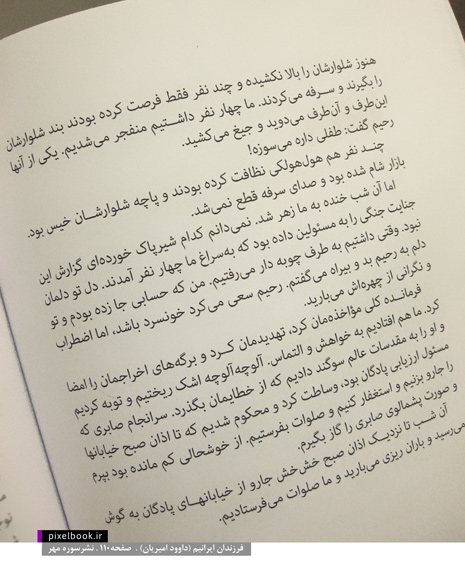 هنوز شلوارشان را بالا نکشیده و چند نفر فقط فرصت کرده بودند بند شلوارشان
را بگیرند و سرفه می‌کردند. ما چهار نفر داشتیم منفجر می‌شدیم. یکی از آنها
این‌طرف و آن‌طرف می‌دوید و جیغ می‌کشید.
رحیم گفت: طفلی داره می‌سوزه!
چند نفر هم هول‌هولکی نظافت کرده بودند و پاچه شلوارشان خیس بود.
بازار شام شده بود و صدای سرفه قطع نمی‌شد.
اما آن شب خنده به ما زهر شد. نمی‌دانم کدام شیرپاک خورده‌ای گزارش این
جنایت جنگی را به مسئولین داده بود که به‌سراغ ما چهار نفر آمدند. دل تو دلمان
نبود. وقتی داشتیم به طرف چوبه دار می‌رفتیم. من که حسابی جا زده بودم و تو
دلم به رحیم بد و بیراه می‌گفتم. رحیم سعی می‌کرد خونسرد باشد، اما اضطراب
و نگرانی از چهره‌اش می‌بارید.
فرمانده کلی مؤاخذه‌مان کرد، تهدیدمان کرد و برگه‌های اخراجمان را امضا
کرد. ما هم افتادیم به خواهش و التماس. آلوچه‌آلوچه اشک ریختیم و توبه کردیم
و او را به مقدسات عالم سوگند دادیم که از خطایمان بگذرد. سرانجام صابری که
مسئول ارزیابی پادگان بود، وساطت کرد و محکوم شدیم که تا اذان صبح خیابانها
را جارو بزنیم و استغفار کنیم و صلوات بفرستیم. از خوشحالی کم مانده بود بپرم
و صورت پشمالوی صابری را گاز بگیرم.
آن شب تا نزدیک اذان صبح خش‌خش جارو از خیابانهای پادگان به گوش
می‌رسید و باران ریزی می‌بارید و ما صلوات می‌فرستادیم.
pixelbook.ir
فرزندان ایرانیم (داوود امیریان) . صفحه۱۱۰ . نشرسوره مهر